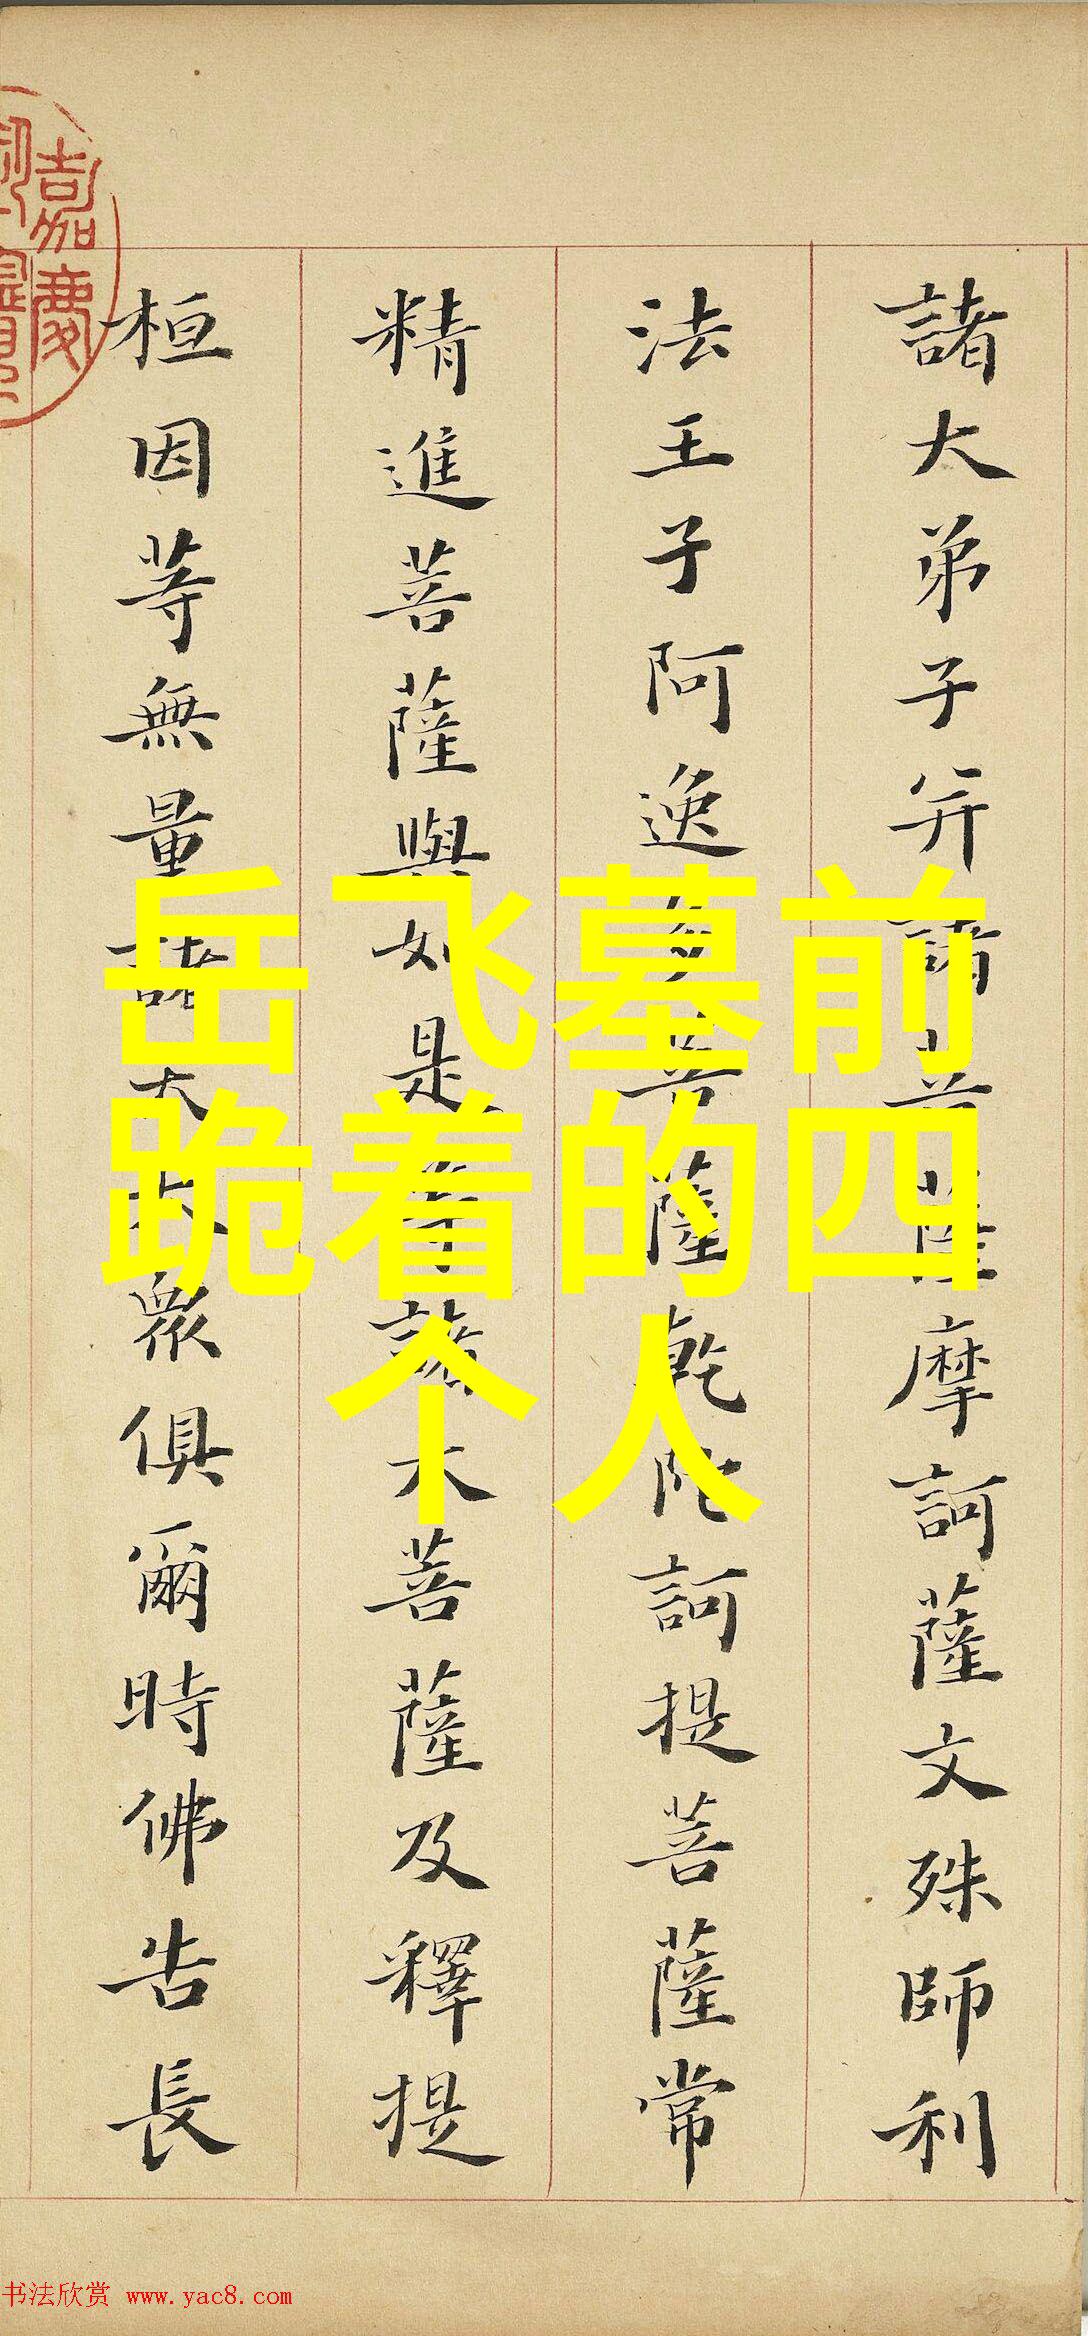 諸大弟子并諸菩薩摩訶薩文殊師利
法王子阿逸多菩薩乾陀訶提菩薩常
精進菩薩與如是等諸大菩薩及釋提
桓因等無量諸天大眾俱爾時佛告長
嘉慶
岳飞墓前
跪着的四
个人
书法欣赏 www.yac8.com